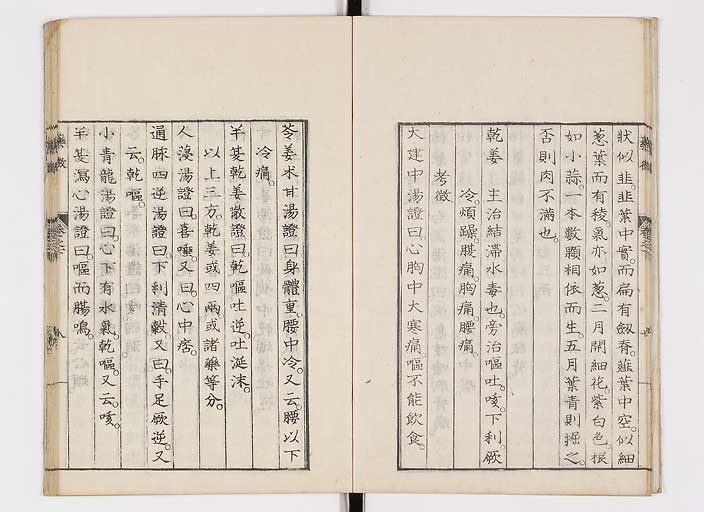 狀似韭。韭葉中實。而扁有劔脊。薤葉中空。似細
葱葉而有稜。氣亦如葱。二月開細花。紫白色。根
如小蒜。一本數顆相依而生。五月葉青則掘之。
否則肉不滿也。
乾姜　主治結滯水毒也。旁治嘔吐。咳。下利厥
冷。煩躁。腹痛胸痛。腰痛
考徵
大建中湯證曰。心胸中大寒痛。嘔不能飲食。
苓姜朮甘湯證曰身體重。腰中冷。又云。腰以下
冷痛。
半夏乾姜散證曰。乾嘔吐逆。吐涎沫。
以上三方。乾姜或四兩或諸藥等分。
人溲湯證曰。喜唾。又曰。心中痞。
通脉四逆湯證曰。下利清穀。又曰。手足厥逆。又
云。乾嘔。
小青龍湯證曰。心下有水氣。乾嘔。又云。咳。
半夏瀉心湯證曰。嘔而腸鳴。